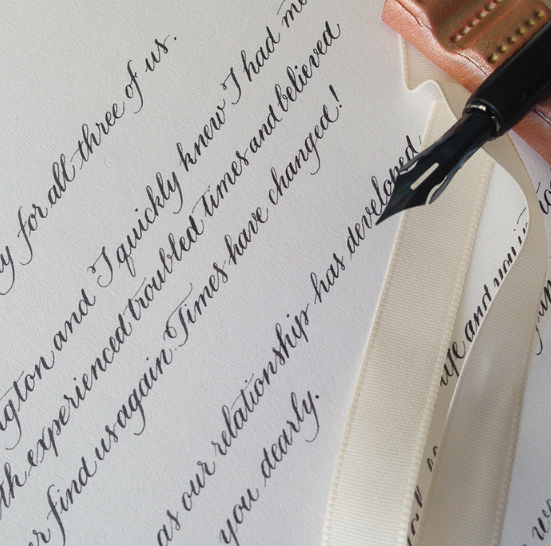 for all three of us.
and I quickly knew I had
experienced troubled times and believed
find us again. Times have changed!
as our relationship has developed
you dearly.
and you